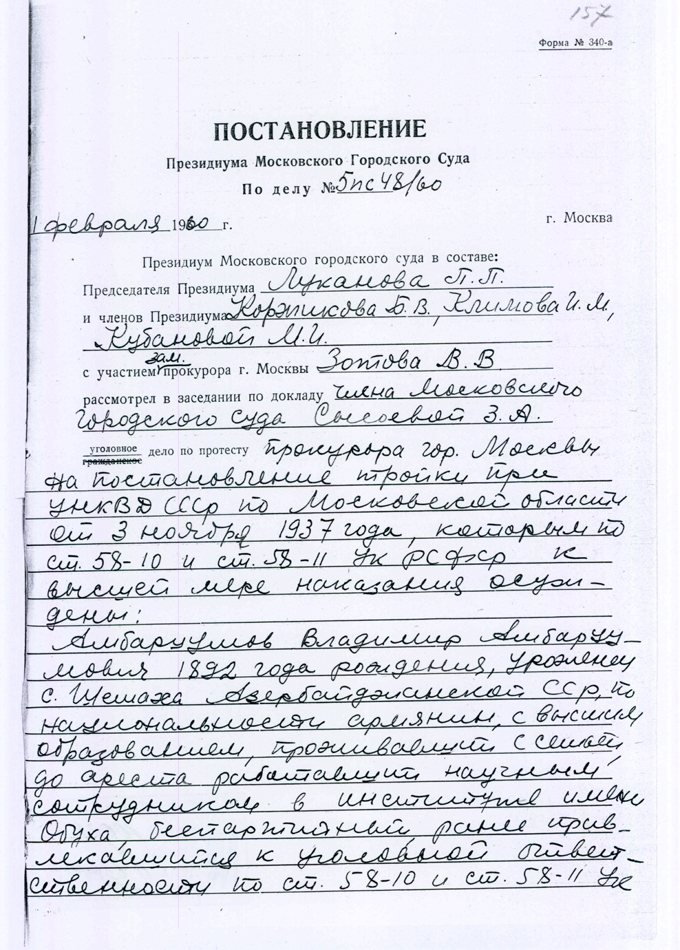 157
Форма № 340-а
ПОСТАНОВЛЕНИЕ
Президиума Московского Городского Суда
По делу № 5пс48/60
1 февраля 1960 г. г. Москва
Президиум Московского городского суда в составе:
Председателя Президиума Луканова П.П.
и членов Президиума Коржикова Б.В., Климова И.М,
Кубановой М.И.
зам.
с участием прокурора г. Москвы Зотова В.В
рассмотрел в заседании по докладу члена Московского
городского суда Сысоевой З.А.
уголовное
гражданское дело по протесту прокурора гор. Москвы
на постановление тройки при
УНКВД СССР по Московской области
от 3 ноября 1937 года, которым по
ст. 58-10 и ст. 58-11 УК РСФСР к
высшей мере наказания осуж-
дены:
Амбарцумов Владимир Амбарцу-
мович 1892 года рождения, уроженец
с. Шемаха Азербайджанской ССР, по
национальности армянин, с высшим
образованием, проживавший с семьей,
до ареста работавший научным
сотрудником в институте имени
Обуха, беспартийный, ранее прив-
лекавшийся к уголовной ответ-
ственности по ст. 58-10 и ст. 58-11 УК